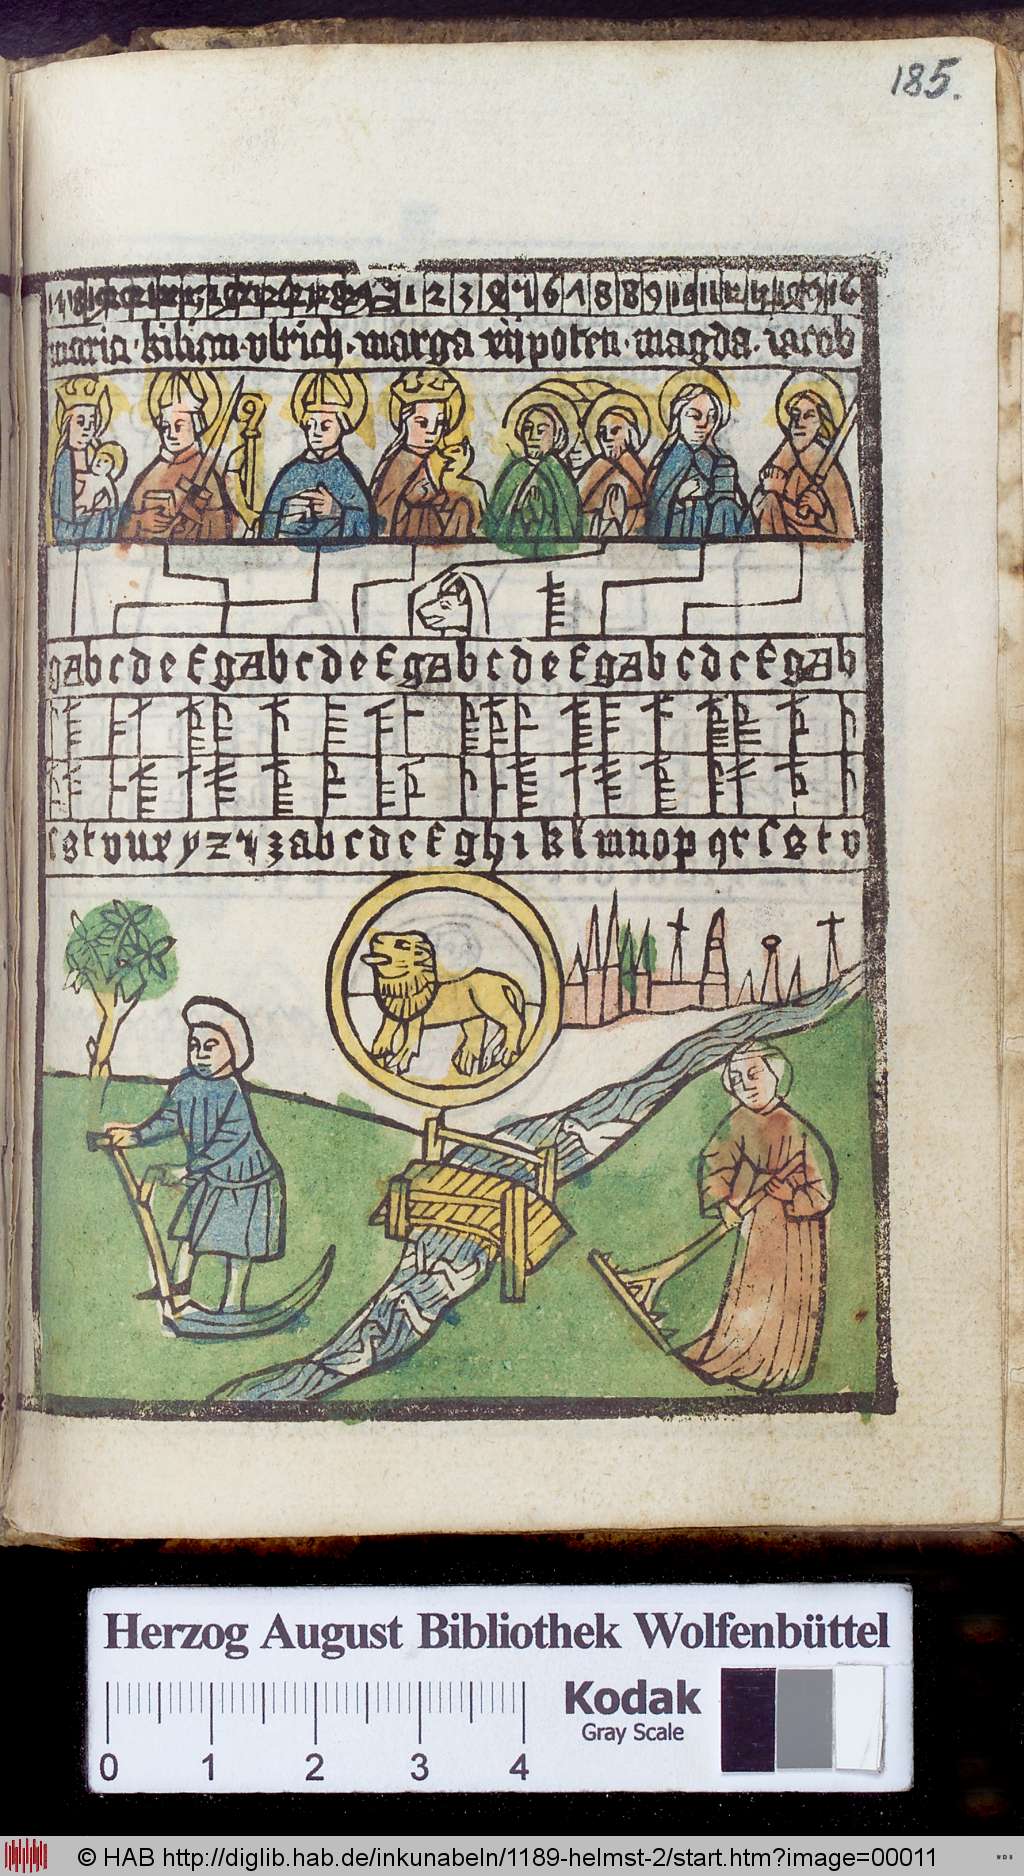 185.
1 2 3 4 5 6 7 8 8 9 10 11 12
maria · kilian · vlrich · marga xij poten · magda · iacob
g A b c d e f g A b c d e f g A b c d e f g A b c d e f g A b
s t v u x y z a b c d e f g h i k l m n o p q r s t v
Herzog August Bibliothek Wolfenbüttel
Kodak
Gray Scale
0 1 2 3 4
© HAB http://diglib.hab.de/inkunabeln/1189-helmst-2/start.htm?image=00011